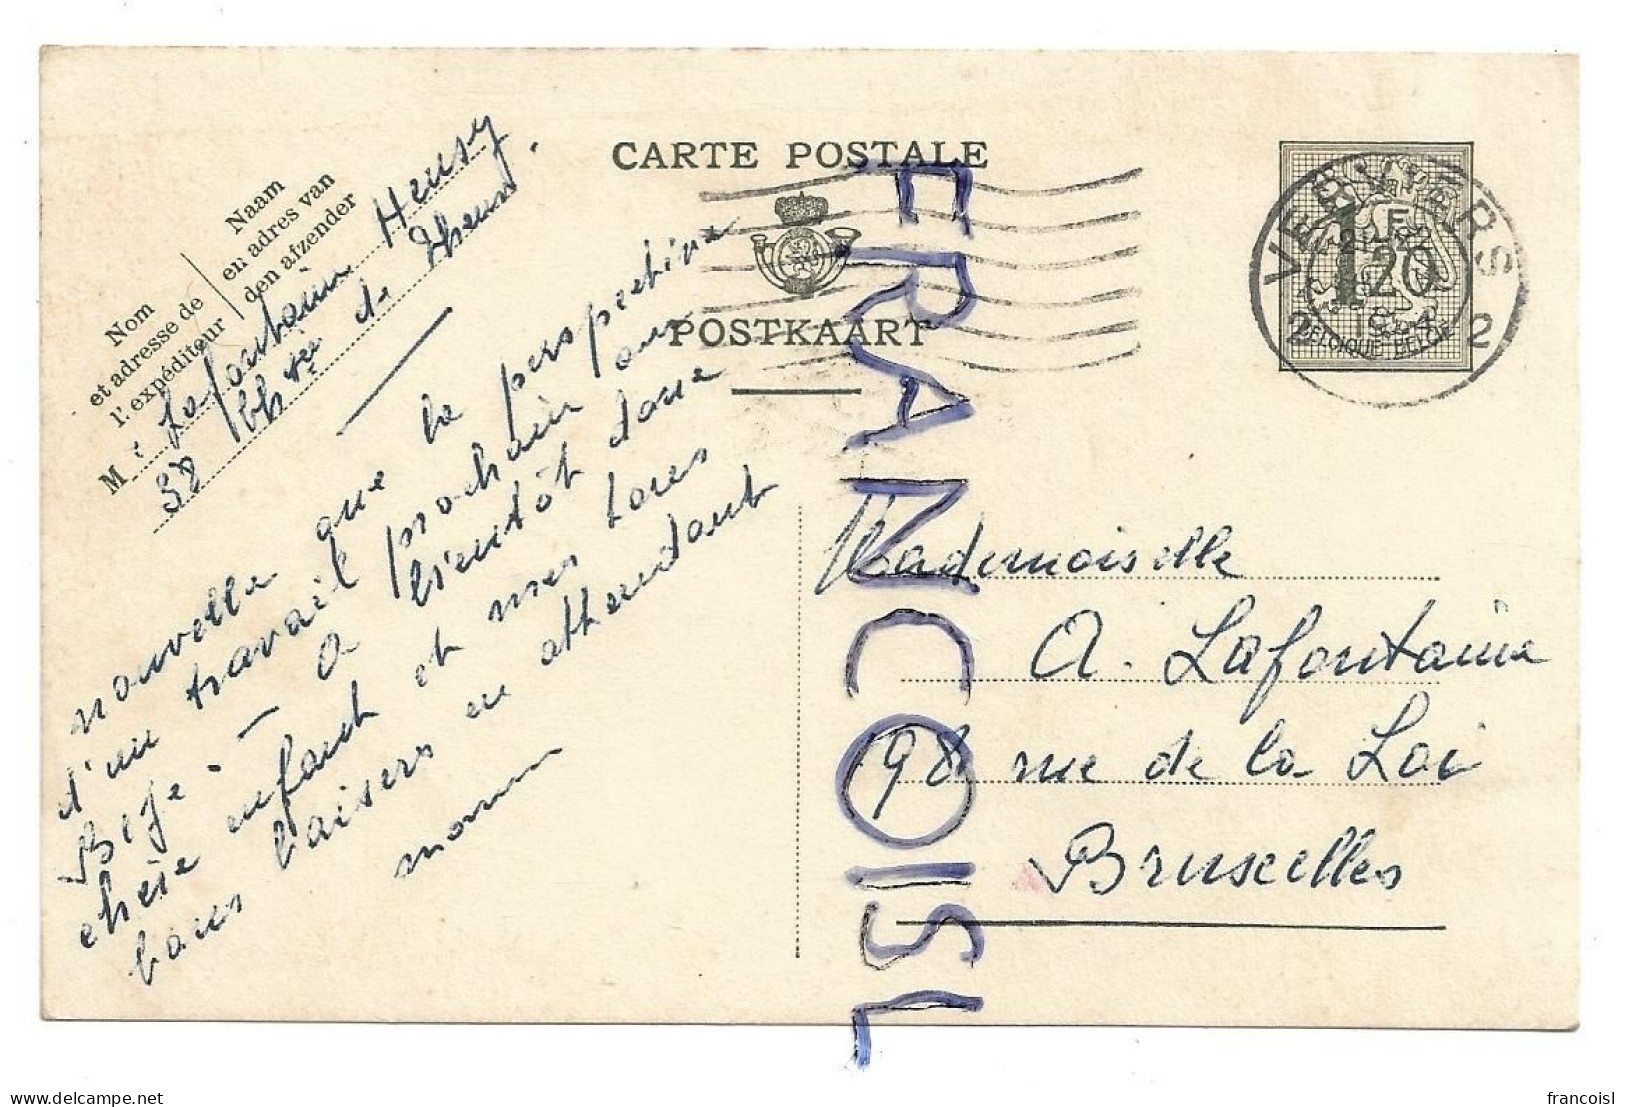 CARTE POSTALE
POSTKAART
Naam
en adres van
den afzender
Nom
et adresse de
l'expéditeur
M. Lafontaine Heusy
58 Ch ée de Theux
1 F
20
BELGIQUE-BELGIE
VERVIERS
2 2
nouvelle que la perspective
d'un travail prochain pour
à bientôt donc
chère enfant et mes
bons baisers en attendant
maman
Mademoiselle
A. Lafontaine
98 rue de la Loi
Bruxelles
FRANCOISL
francoisl